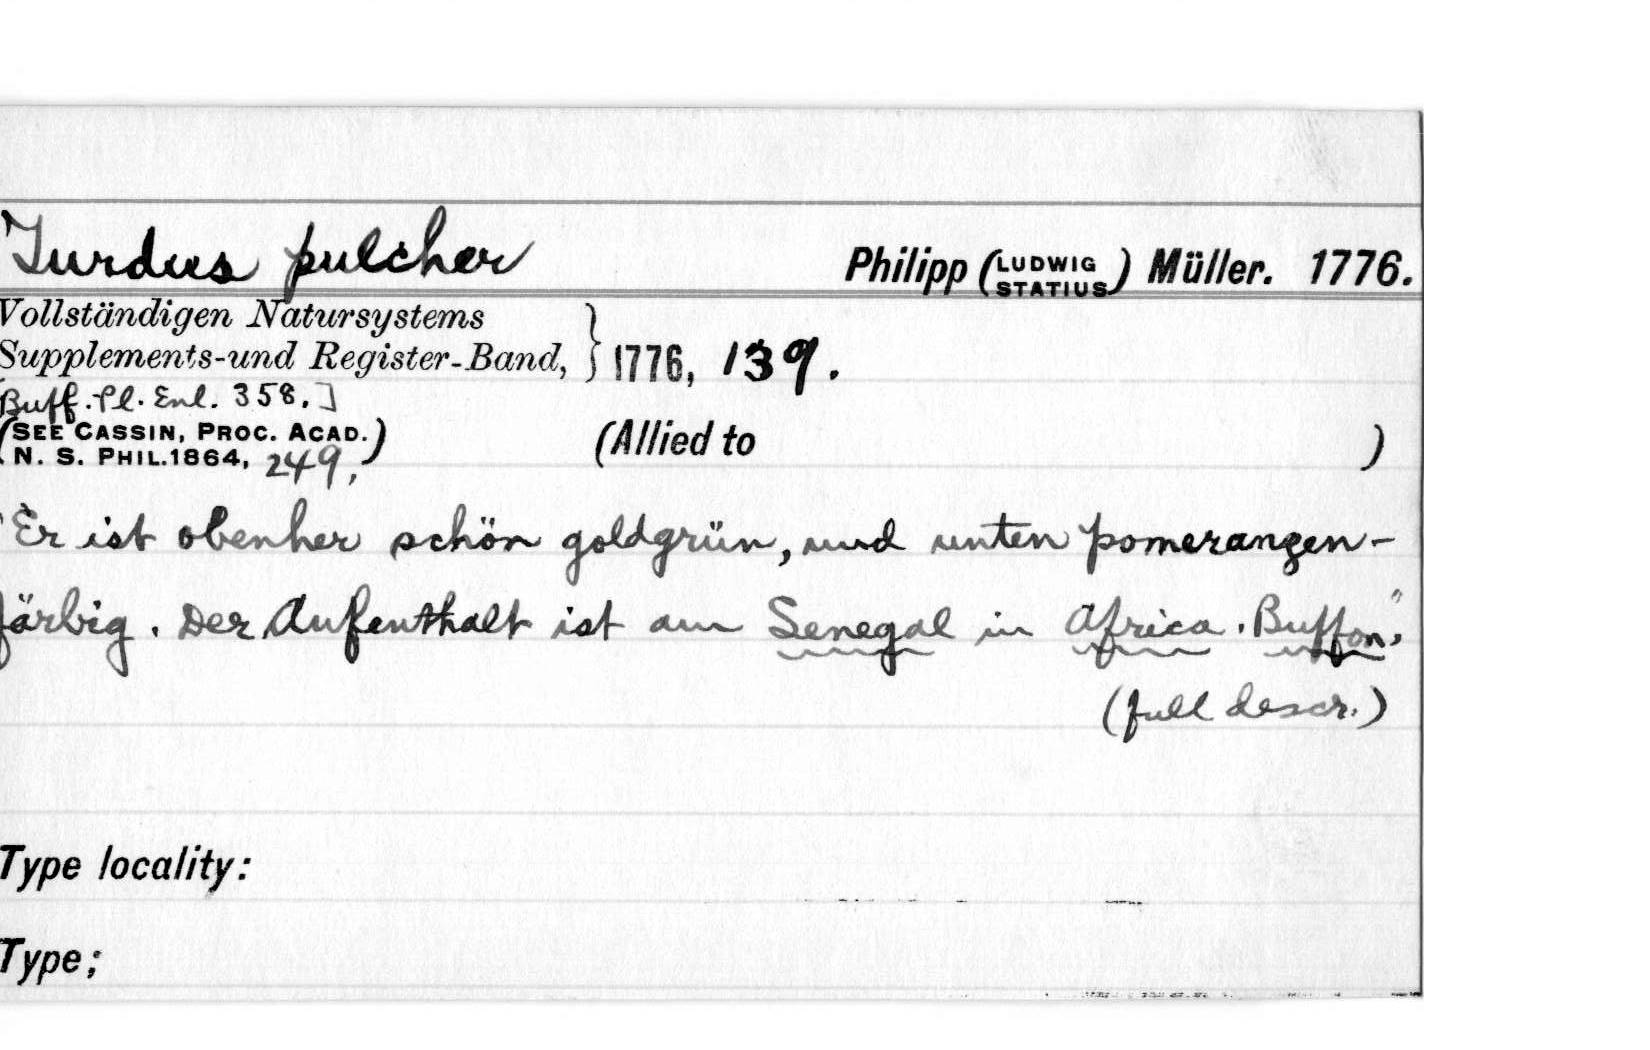 Turdus pulcher Philipp (LUDWIG STATIUS) Müller. 1776.
Vollständigen Natursystems
Supplements-und Register-Band, } 1776, 139.
[Buff. Pl. Enl. 358.]
(SEE CASSIN, PROC. ACAD. (Allied to )
N. S. PHIL. 1864, 249,)
"Er ist obenher schön goldgrün, und unten pomerangen-
färbig. Der Aufenthalt ist am Senegal in Africa. Buffon."
(full descr.)
Type locality:
Type;